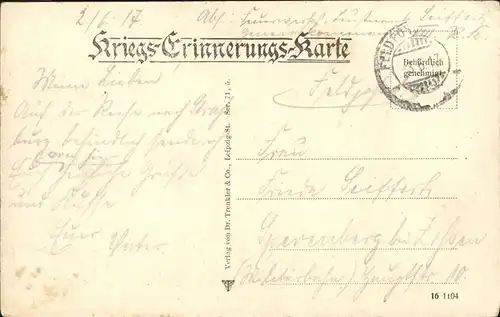 2/6. 17 Abs: Feuerwerks- Seiffert
Kriegs-Erinnerungs-Karte
FELDPOST
Behördlich
genehmigt
Feldpost
Meine Lieben
Auf der Reise nach Straß-
burg befindlich sende ich
herzliche Grüße
und Küsse
Euer Vater.
Verlag von Dr. Trenkler & Co., Leipzig-St. Ser. 71, 5.
Frau
Frieda Seiffert
Sperenberg bei Zossen
(Militärbahn) Hauptstr. 10.
16 1104